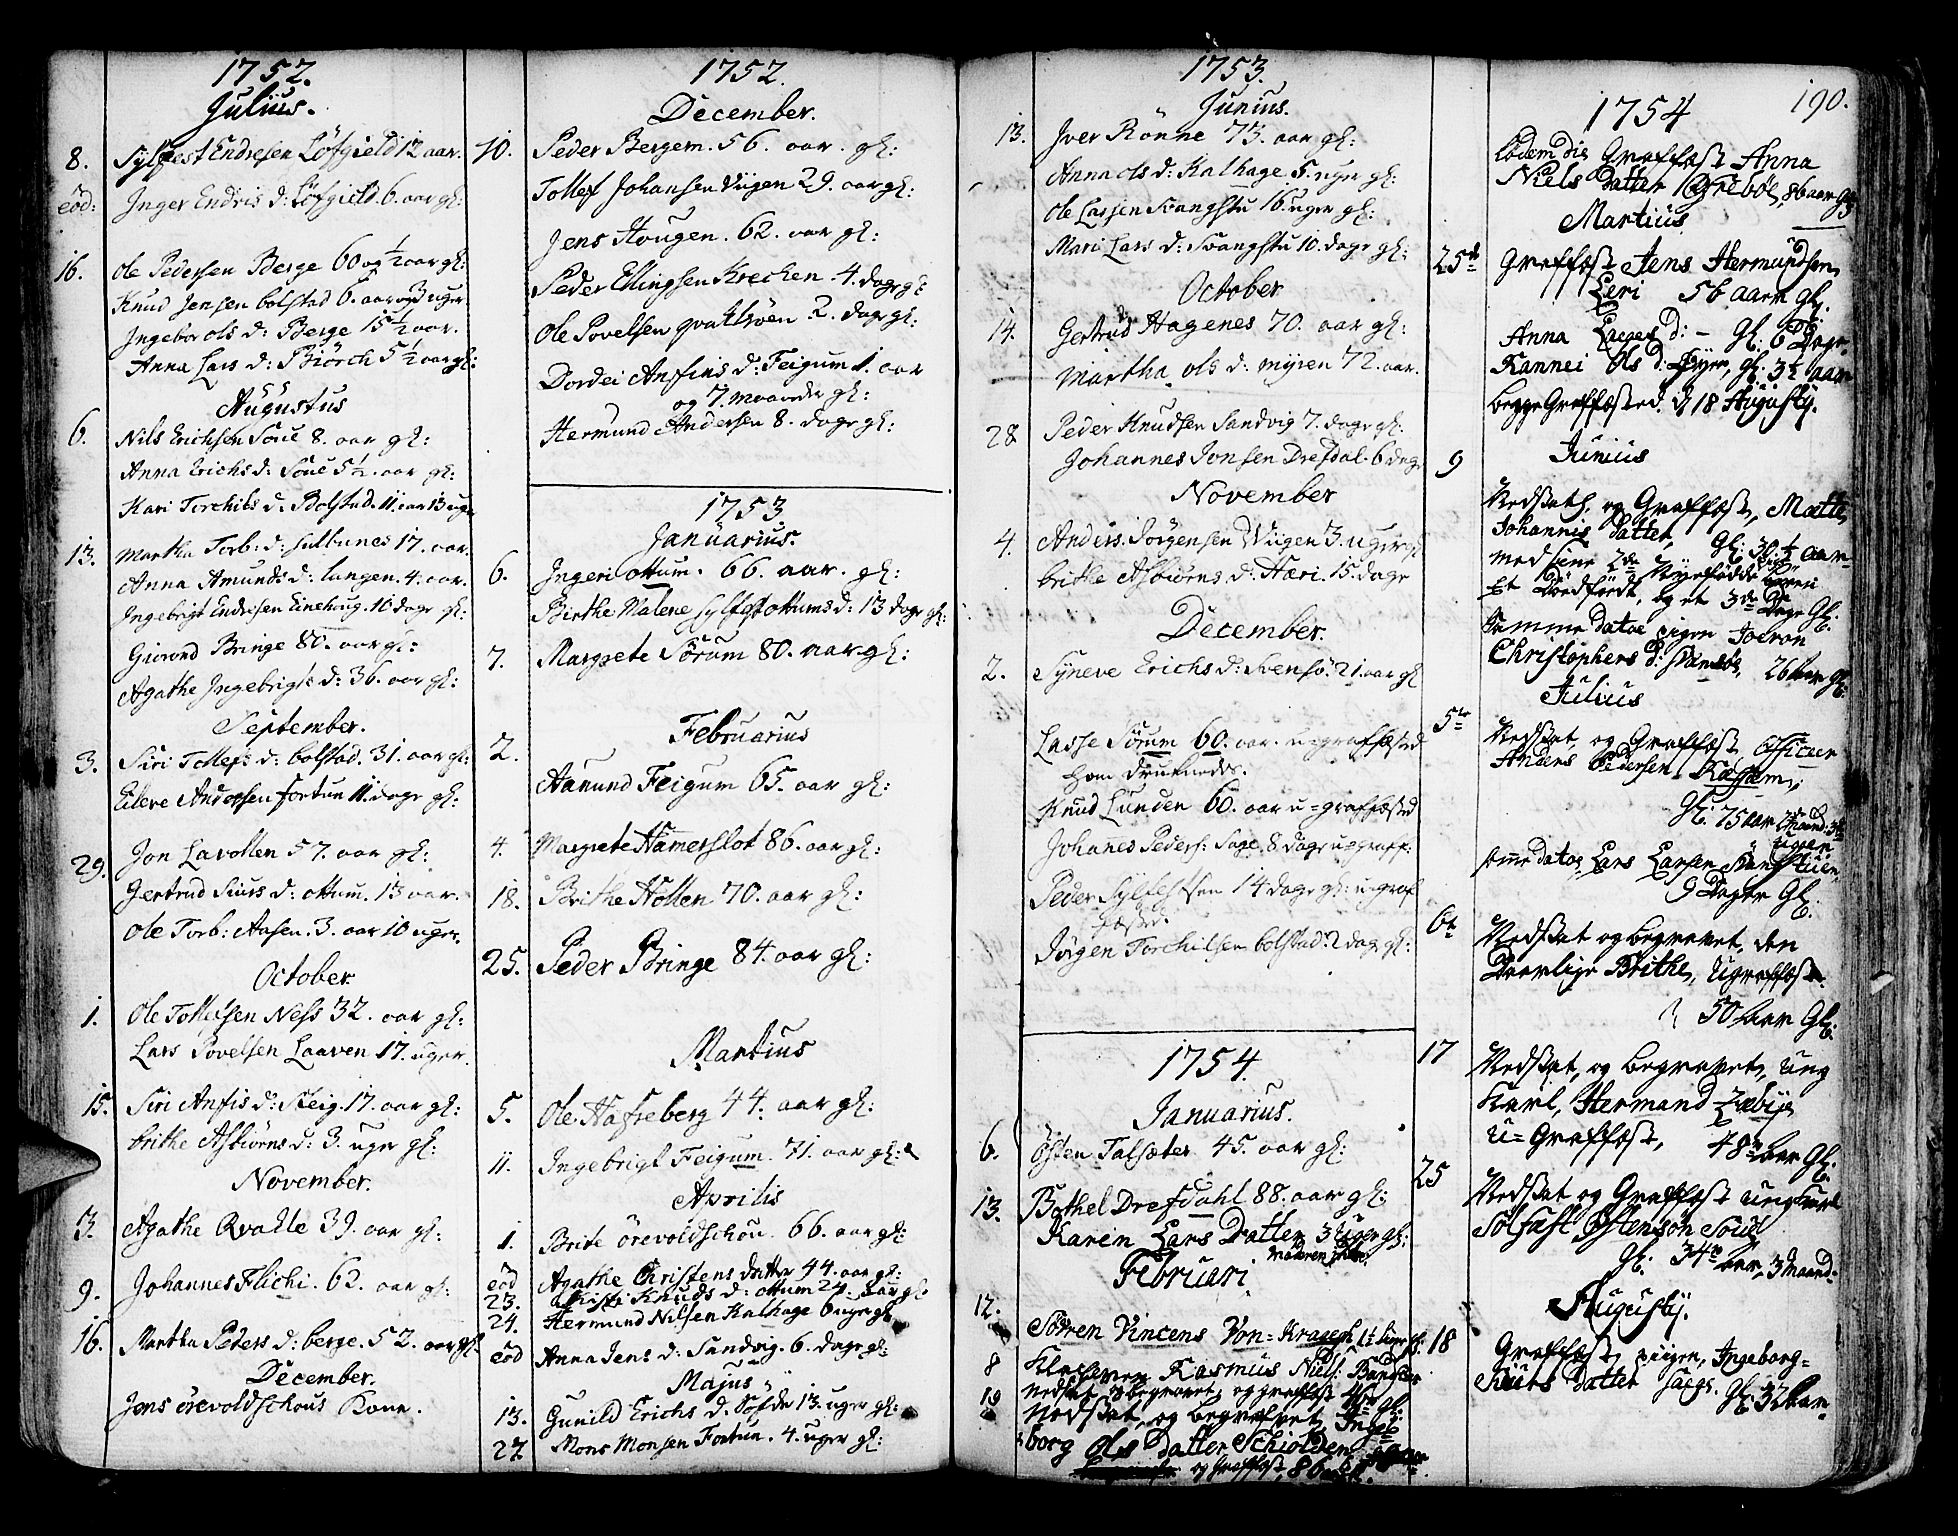 1752.
Julius.
8. Sylfest Endresen Löfgield 12 aar.
eöd: Inger Endris d: Löfgield 6. aar gl:
16. Ole Pedersen Berge 60 og ½ aar gl:
Knud Jensen bolstad 6. aar og 3 uger
Ingebor ols d: Berge 15½ aar.
Anna Lars d: Biörch 5½ aar gl:
Augustus
6. Nils Erichsen Soue 8. aar gl:
Anna Erichs d: Soue 5½. aar gl:
Kari Torchils d: Bolstad. 11. aar 13 uger
13. Martha Torb: d: 17. aar.
Anna Amunds d: langen. 4. aar.
Ingebrigt Endresen 10 dage gl:
Giörond Bringe 80. aar gl:
Agathe Ingebrigts d: 36. aar gl:
September.
3. Siri Tollefs d: bolstad. 31. aar gl:
Eileve Andersen fortun 11. dage gl:
29. Jon Lavollen 57. aar gl:
Gertrud Siurs d: ottum. 13 aar.
Ole Torb: Aasen. 3. aar 10 uger.
October
1. Ole Tollefsen Ness 32. aar gl:
Lars Povelsen Laaven 17. uger.
15. Siri Anfis d: Steig. 17. aar gl:
brithe Asbiörns d: 3. uger gl:
November.
3. Agathe Qvalle 39. aar gl:
9. Johannes Flichi. 62. aar gl:
16. Martha Peders d: berge. 52. aar gl:
December.
Jens örevoldschous Kone.
1752.
December.
10. Peder Bergem. 56. aar. gl:
Tollef Johansen Viigen 29. aar gl:
Jens Hougen. 62. aar gl:
Peder Ellingsen Krechen 4. dage gl:
Ole Povelsen 2. dage gl:
Dordei Anffins d: Feigum 1. aar
og 7. maaneder gl:
Hermund Andersen 8. dage gl:
1753
Januarius.
6. Ingeri ottum. 66. aar. gl:
Birthe Malene Sylfest ottums d: 13 dage gl:
7. Margrete Sörum 80. aar gl:
Februarius
2. Aamund Feigum 65. aar gl:
4. Margrete Hamerslot 86. aar gl:
18. Brithe Hollen 70. aar gl:
25. Peder Bringe 84. aar gl:
Martius
5. Ole Hafreberg 44. aar gl:
11. Ingebrigt Feigum. 71. aar gl:
Aprilis
1. Brite örevoldschou. 66. aar gl:
eöd Agathe Christens datter 44. aar gl:
23. Knuds d: ottum 24. aar gl:
24. Hermund Nilsen Kalhage 6 uger gl:
eöd Anna Jens d: Sandvig. 6. dage gl:
Majus
13. Gunild Erichs d: Sofde 13. uger gl:
27. Mons Monsen Fortun. 4. uger gl:
1753.
Junius.
13. Iver Rönne 73. aar gl:
Anna ols d: Kalhage 5. uger gl:
Ole Larsen Svangstu 16. uger gl:
Mari Lars d: Svangstu 10. dage gl:
October
14. Gertrud Hagenes 70. aar gl:
Martha ols d: myren 72. aar.
28 Peder Knudsen Sandvig 7. dage gl:
Johannes Jonsen Dresdal. 6 dage
November
4. Anders Jörgensen Wiigen 3. uger gl
brithe Asbiörns d: Hæri. 15. dage
December.
2. Syneve Erichs d: Svensö. 21. aar gl
Lasse Sörum 60. aar. u-grafsæsted
hom drucnede.
Knud Lunden 60. aar u-grafsæsted
Johanes Peders: Sage. 8 dage u-graff:
Peder Sylfestsen 14 dage gl: u-graf
fæstet
Jörgen Torchilsen bolstad. 2 dage gl:
1754.
Januarius.
6. Östen Talsæter 45. aar gl:
13. Bothel Dresdahl 88. aar gl:
Karen Lars Datter 3½ uger gl:
Februari
12. Sören Vincens Von-Kragegh
8 Rasmus Niels:
19 nedsat, og begravet, og grafsæst
nedsat, og begrafvet Ingeb
borg Ols Datter Schiolden
og Grafsæst, 86
190.
1754
Lodem die Grafsæst Anna
Niels Datter Qrebøe, 86 aar gl
Martius
25de Grafsæst Jens Hermundsen
Leri 56 aar gl.
Anna d: - gl. 6 Dage.
Rannei Ols d: gl: 3½ aar
begge Grafsæsted. d 18 Augusty.
Junius
9 Nedsat, og Grafsæst, Mætte
Johannis Datter, gl: 30½ aar
med sine 2de Nyefödde børen
Et Dödfödt, og et 3de Dage Gl.
Samme dato pigen Joeron
Christophers d: 26 aar gl.
Julius
5te Nedsat, og Grafsæst, Officeer
Anders Pedersen
gl: 75 aar Maand. 3
uger
samme dato Lars Larsen Svangstuen
9 Dager Gl.
6te Nedsat og begravet, den
Brithe, Ugrafsæst.
50 aar Gl.
17 Nedsat, og begravet, ung
Karl, Hermand
u-Grafsæst, 48 aar Gl.
25 Nedsat og Grafsæst ung karl
Solfast Östensön Soue
gl. 34 aar, 3 maand.
Augusty.
18 Grafsæst, pigen, Ingeborg
Siurs Datter gl: 32 aar